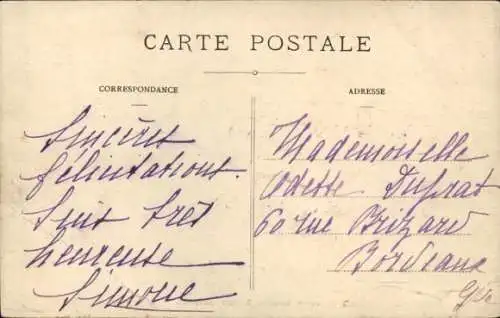 CARTE POSTALE
CORRESPONDANCE
ADRESSE
Sincères
félicitations.
Suis très
heureuse
Simone
Mademoiselle
Odette Duprat
60 rue Brizard
Bordeaux